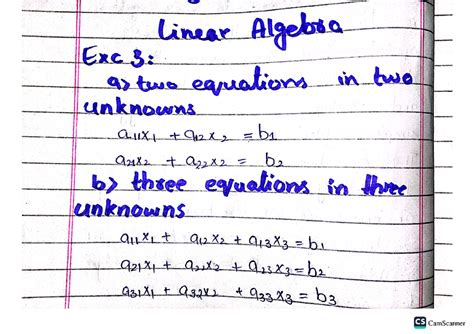 Linear Algebra
Exc 3:
a) two equations in two
unknowns
a₁₁x₁ + a₁₂x₂ = b₁
a₂₁x₂ + a₂₂x₂ = b₂
b) three equations in three
unknowns
a₁₁x₁ + a₁₂x₂ + a₁₃x₃ = b₁
a₂₁x₁ + a₂₂x₂ + a₂₃x₃ = b₂
a₃₁x₁ + a₃₂x₂ + a₃₃x₃ = b₃
CS CamScanner